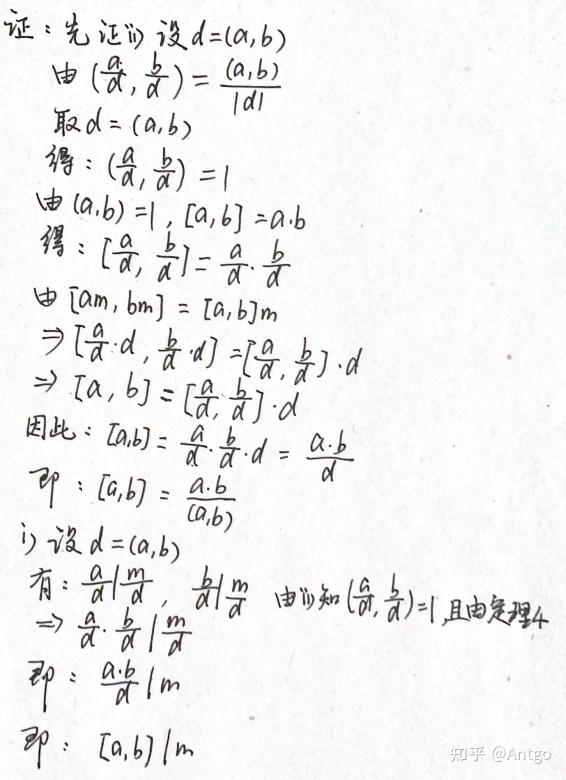 证：先证ii) 设d=(a,b)
由 (a/d, b/d) = (a,b)/|d|
取d=(a,b)
得：(a/d, b/d) = 1
由(a.b)=1, [a,b]=a·b
得：[a/d, b/d] = a/d · b/d
由[am, bm] = [a,b]m
⇒ [a/d·d, b/d·d] = [a/d, b/d]·d
⇒ [a, b] = [a/d, b/d]·d
因此：[a,b] = a/d · b/d · d = a·b/d
即：[a,b] = a·b/(a,b)
i) 设d=(a,b)
有：a/d | m/d , b/d | m/d 由ii)知(a/d, b/d)=1,且由定理4
⇒ a/d · b/d | m/d
即：a·b/d | m
即：[a,b] | m
知乎 @Antgo